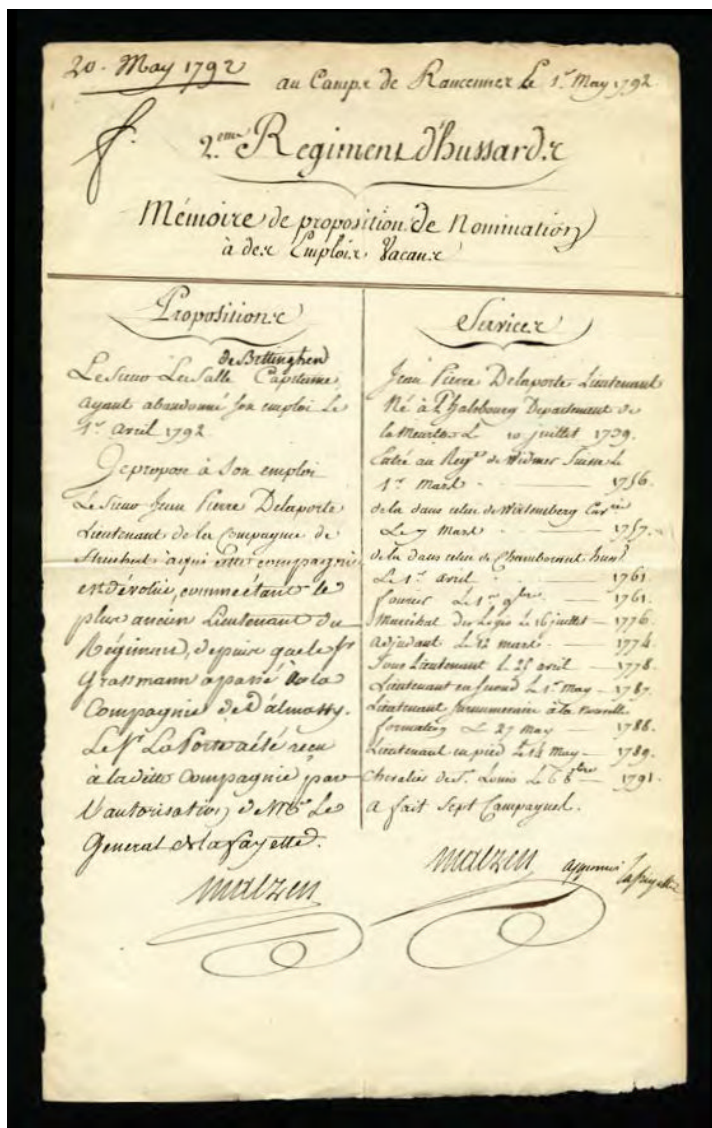 20. May 1792
au Camp de Rancennes le 1er May 1792.
2.eme Regiment d'hussards
Mémoire de proposition de Nomination
à des Emplois Vacans
Propositions
de Bettinghen
Le Sieur La Salle Capitaine
ayant abandonné son emploi le
1er avril 1792.
Je propose à Son emploi
Le Sieur Jean Pierre Delaporte
Lieutenant de la Compagnie de
à qui cette compagnie
est dévolue, comme étant le
plus ancien Lieutenant du
Régiment, depuis que le Sr
Grassmann a passé à la
Compagnie de Dálmassy.
Le Sr La Porte a été reçu
à la ditte Compagnie par
l'autorisation de Mr Le
General de la fayette.
malzen
Services
Jean Pierre Delaporte Lieutenant
Né à Phalsbourg Departement de
la Meurthe Le 10 juillet 1739.
Entré au Regt de Widmer Suisse le
1er Mars 1756.
de la dans celui de Wirtemberg Cavrie
Le 7 Mars 1757.
de la dans celui de Chamborant huss
Le 1er avril 1761
fourier Le 1er 9bre 1761.
Maréchal des Logis le 16 juillet 1776.
adjudant le 12 mars 1774
Sous Lieutenant le 25 avril 1778.
Lieutenant en second le 1er May 1787.
Lieutenant surnumeraire à la nouvelle
formation Le 27 May 1788.
Lieutenant en pied Le 14 May 1789.
Chevalier de St. Louis le 6 8bre 1791.
a fait Sept Campagnes.
malzen
approuvé Lafayette